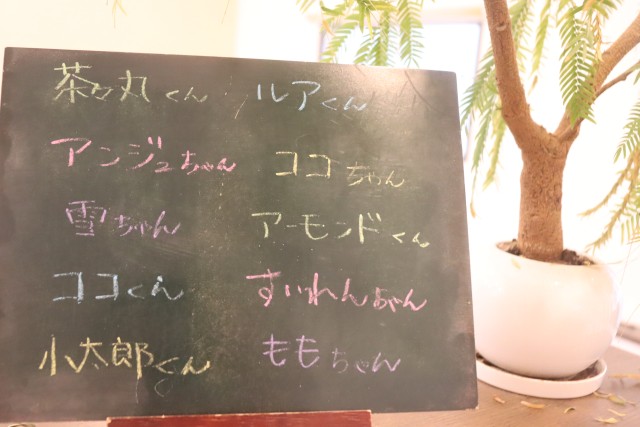 茶々丸くん ルアくん
アンジュちゃん ココちゃん
雪ちゃん アーモンドくん
ココくん すいれんちゃん
小太郎くん ももちゃん